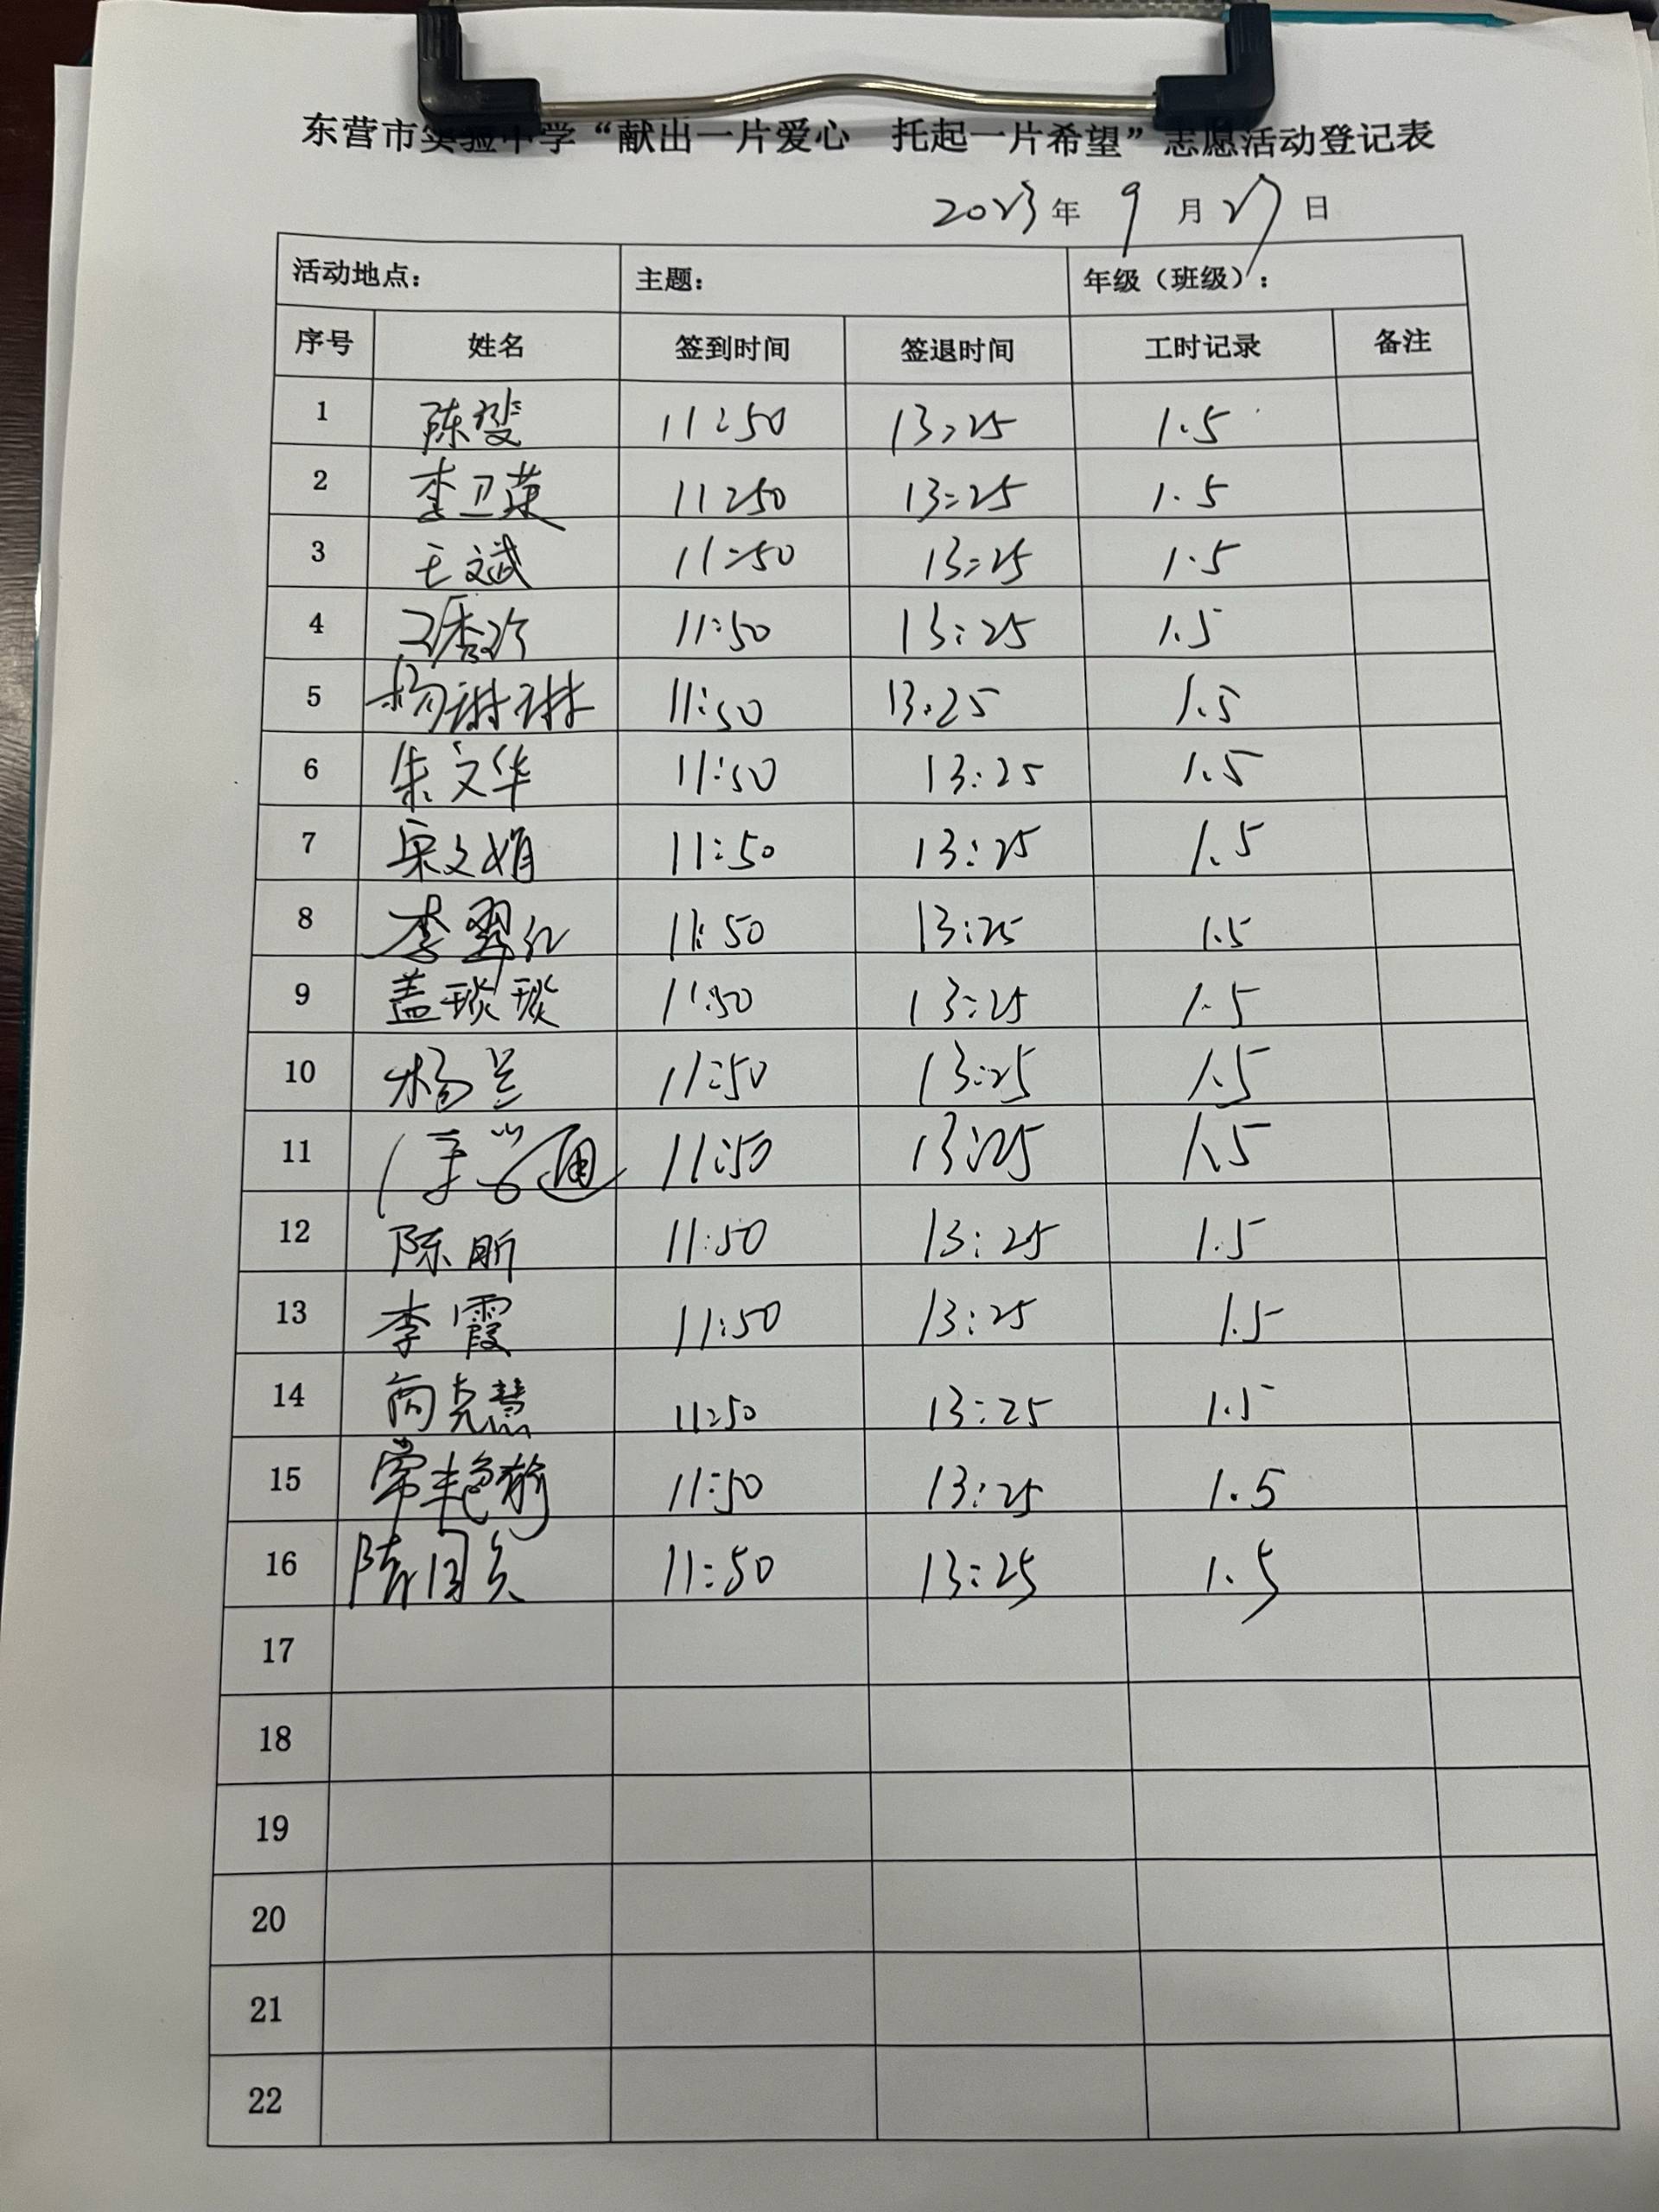 东营市实验中学“献出一片爱心 托起一片希望”志愿活动登记表
2023年 9月27日
活动地点： 主题： 年级（班级）：
序号 姓名 签到时间 签退时间 工时记录 备注
1 陈斐 11:50 13:25 1.5
2 李卫英 11:50 13:25 1.5
3 王斌 11:50 13:25 1.5
4 11:50 13:25 1.5
5 杨琳琳 11:50 13:25 1.5
6 朱文华 11:50 13:25 1.5
7 宋文娟 11:50 13:25 1.5
8 李翠红 11:50 13:25 1.5
9 盖琰琰 11:50 13:25 1.5
10 杨兰 11:50 13:25 1.5
11 11:50 13:25 1.5
12 陈昕 11:50 13:25 1.5
13 李霞 11:50 13:25 1.5
14 尚克慧 11:50 13:25 1.5
15 常艳 11:50 13:25 1.5
16 11:50 13:25 1.5
17
18
19
20
21
22